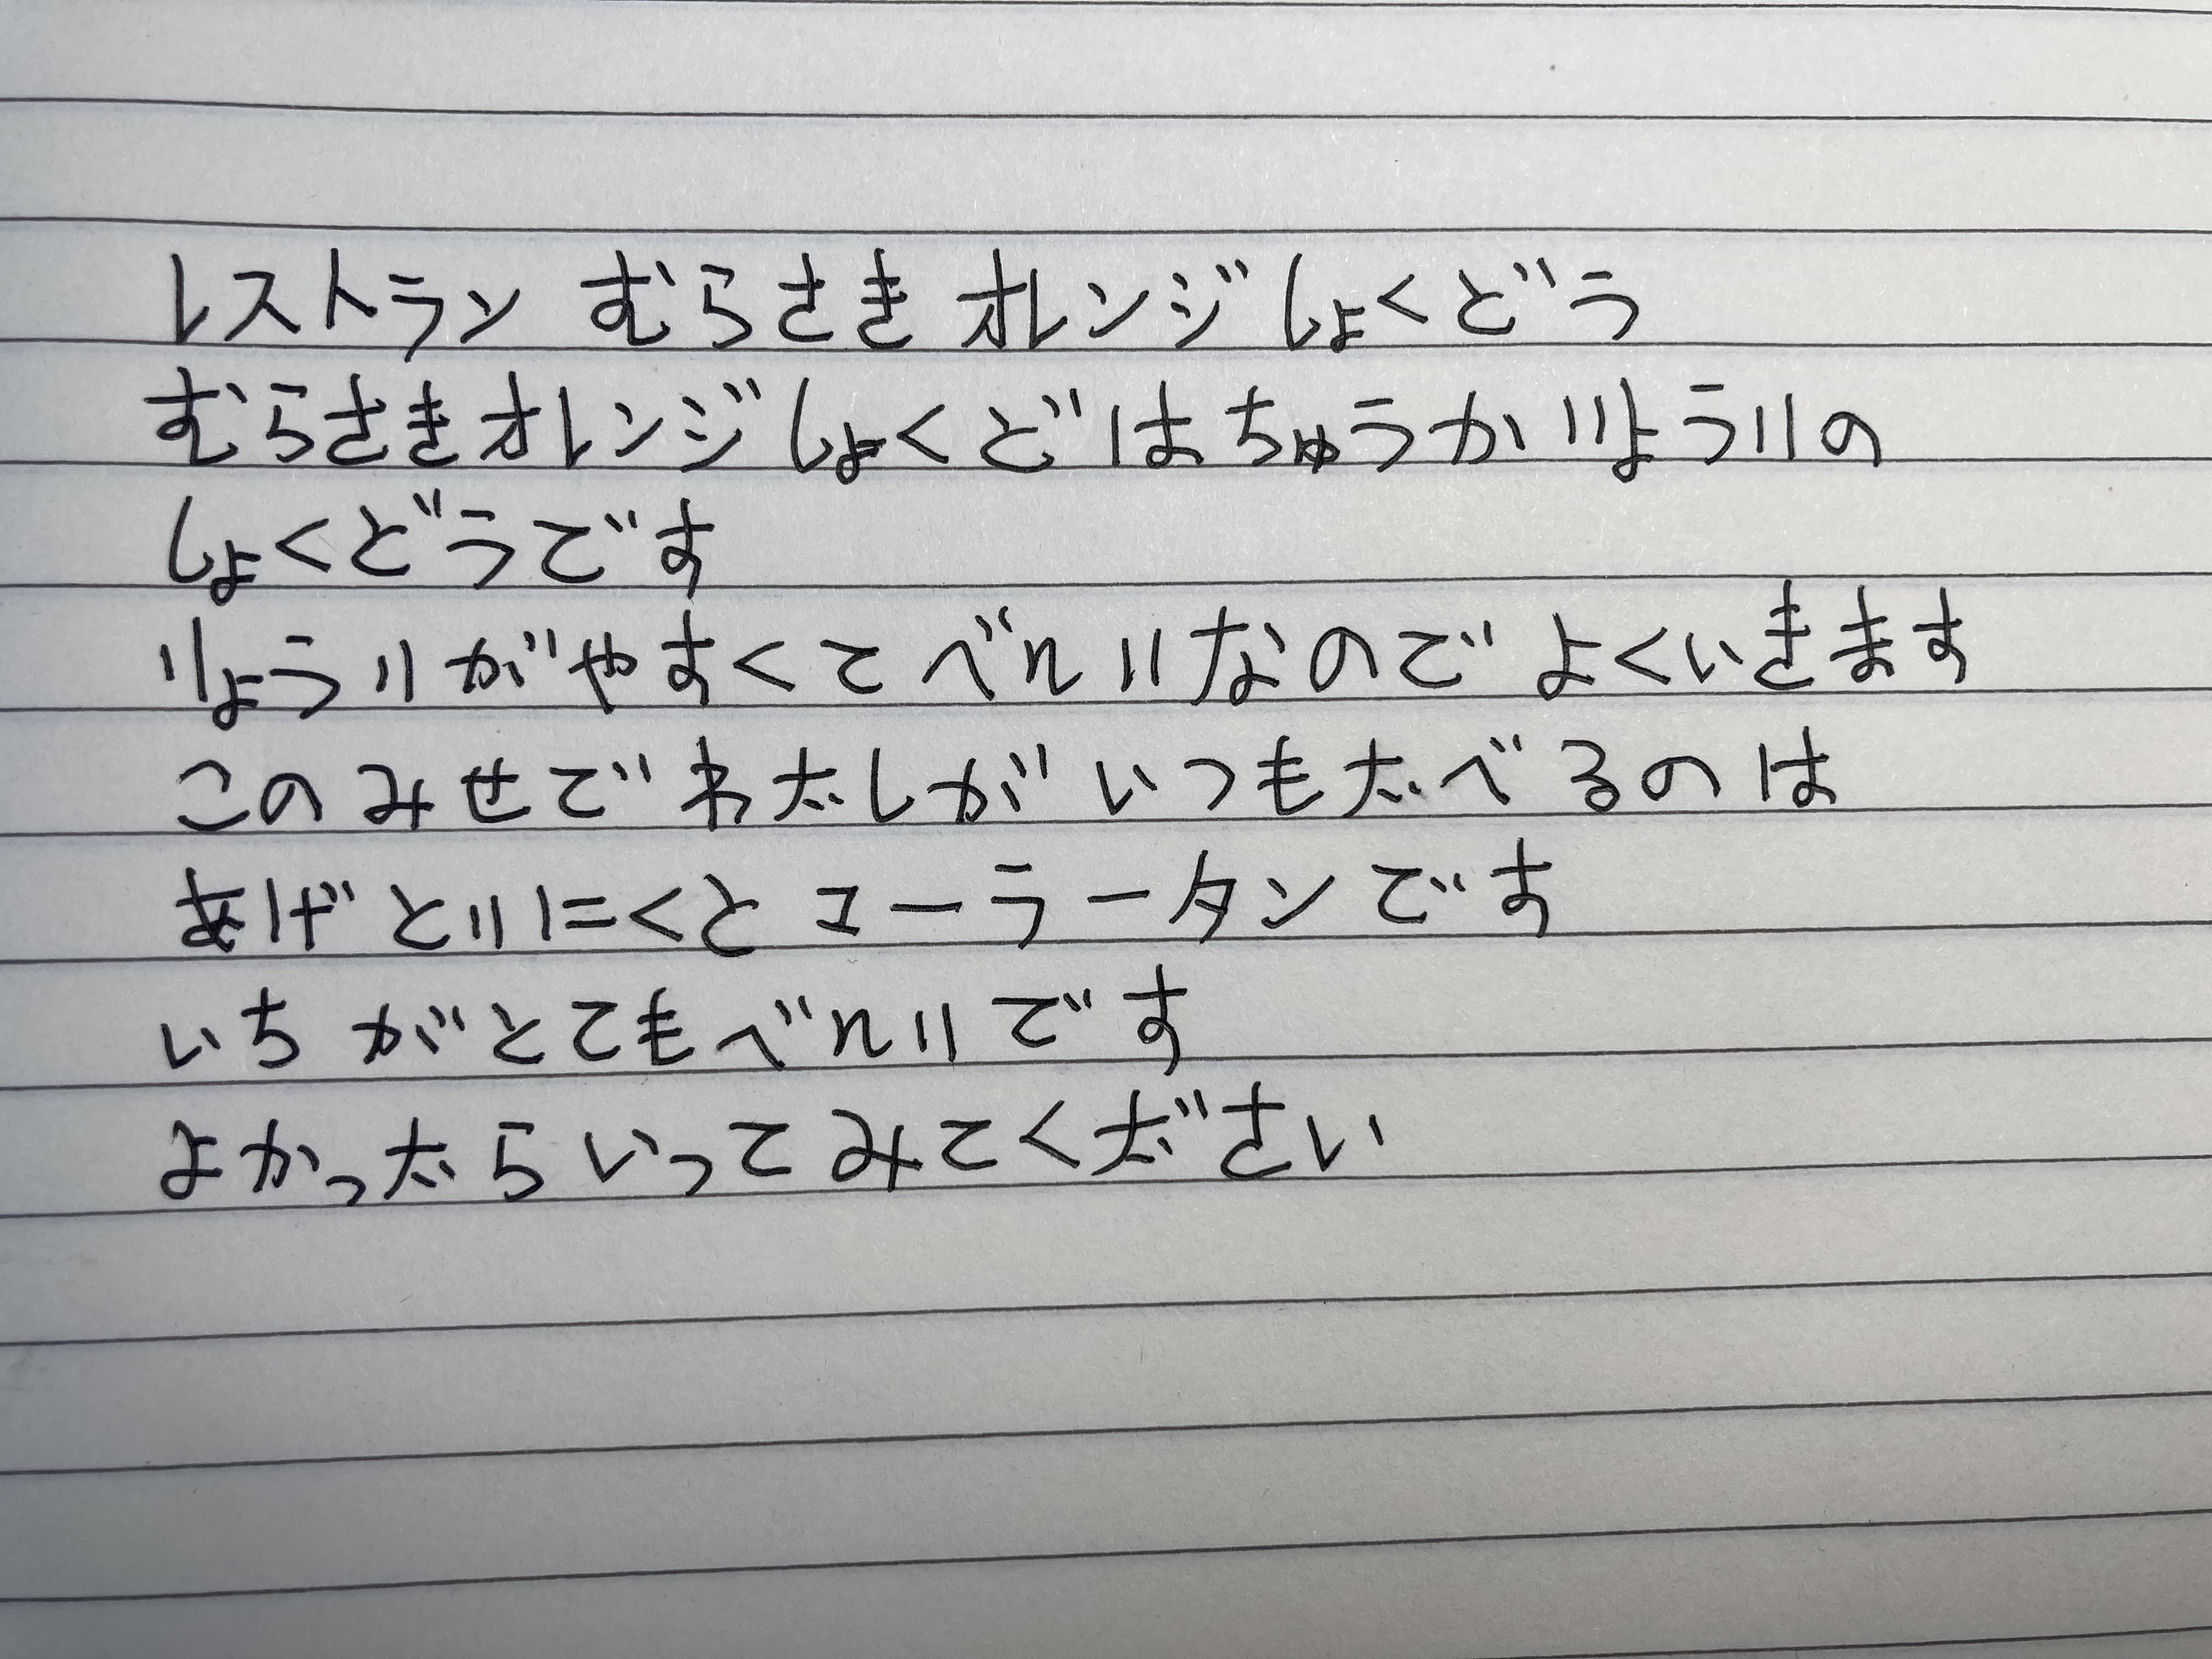 レストラン むらさき オレンジしょくどう
むらさきオレンジしょくどはちゅうかりょうりの
しょくどうです
りょうりがやすくてべんりなので よくいきます
このみせでわたしがいつもたべるのは
あげとりにくとユーラータンです
いちがとてもべんりです
よかったらいってみてください